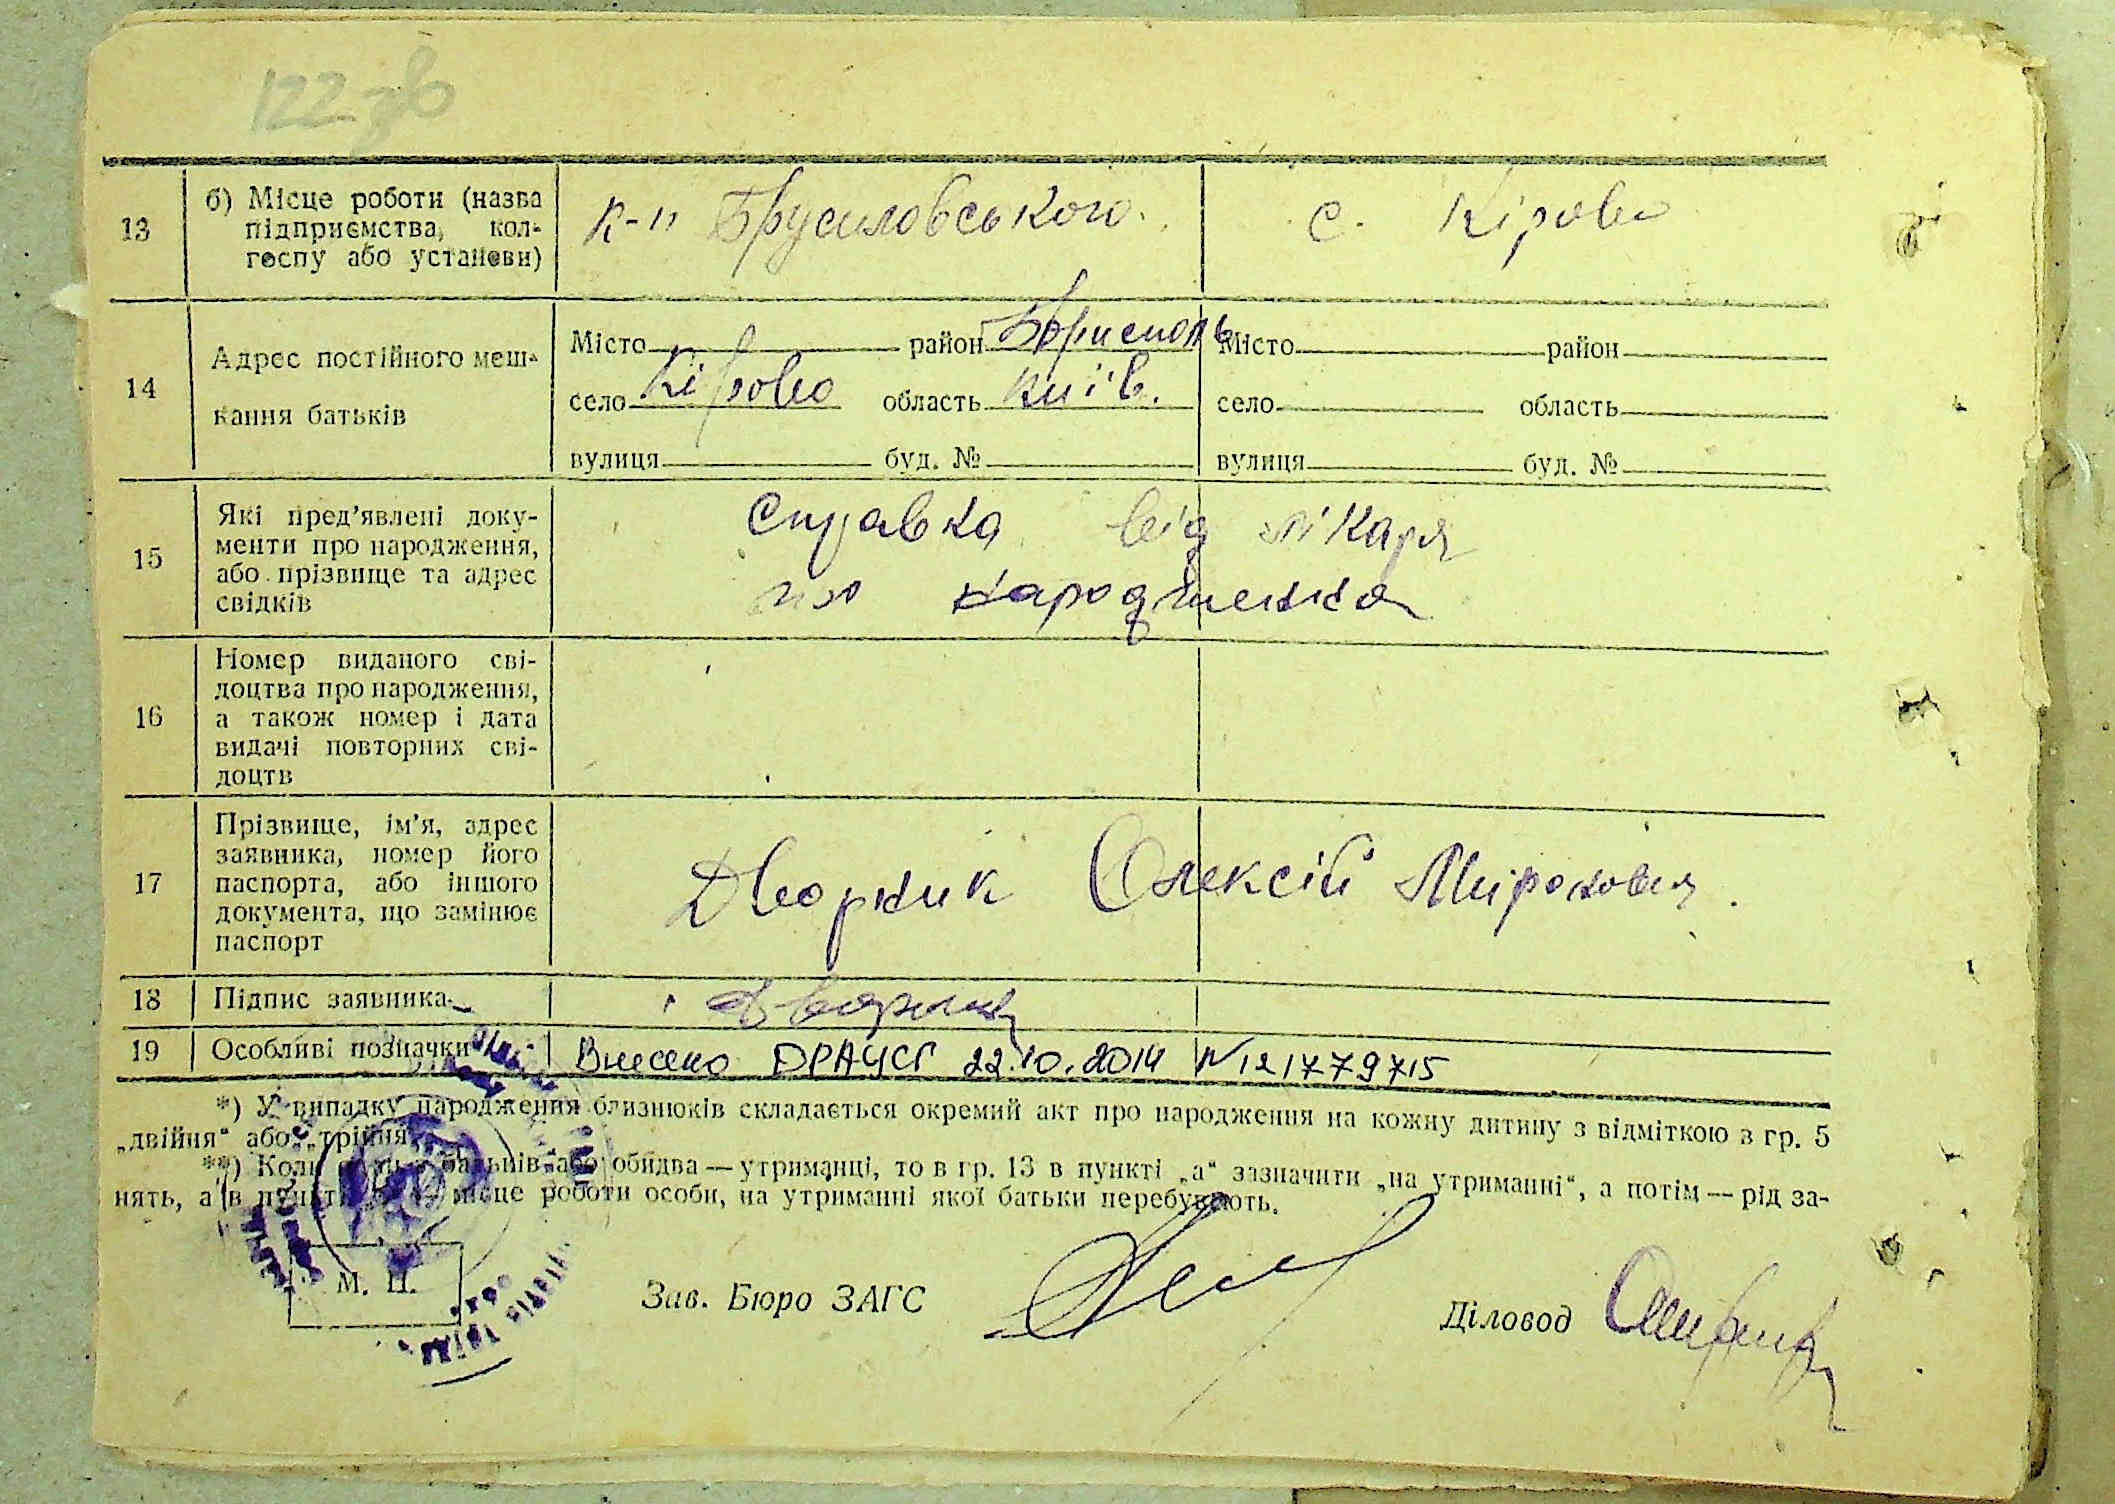 122 зв
13
б) Місце роботи (назва
підприємства, кол-
госпу або установи)
к-п Брусиловського.
с. Кірово
14
Адрес постійного меш-
кання батьків
Місто район Борисполь
село Кірово область Київ.
вулиця буд. №
Місто район
село область
вулиця буд. №
15
Які пред’явлені доку-
менти про народження,
або прізвище та адрес
свідків
Справка від лікаря
народження
16
Номер виданого сві-
доцтва про народження,
а також номер і дата
видачі повторних сві-
доцтв
17
Прізвище, ім’я, адрес
заявника, номер його
паспорта, або іншого
документа, що замінює
паспорт
Дворник Олексій Миронович.
18
Підпис заявника
Дворник
19
Особливі позначки
Внесено ДРАЦСГ 22.10.2014 №121779715
*) У випадку народження близнюків складається окремий акт про народження на кожну дитину з відміткою в гр. 5
„двійня“ або „трійня“.
**) Коли або обидва — утриманці, то в гр. 13 в пункті „а“ зазначити „на утриманні“, а потім — рід за-
нять, а в пункті місце роботи особи, на утриманні якої батьки перебувають.
М. П.
Зав. Бюро ЗАГС
Діловод